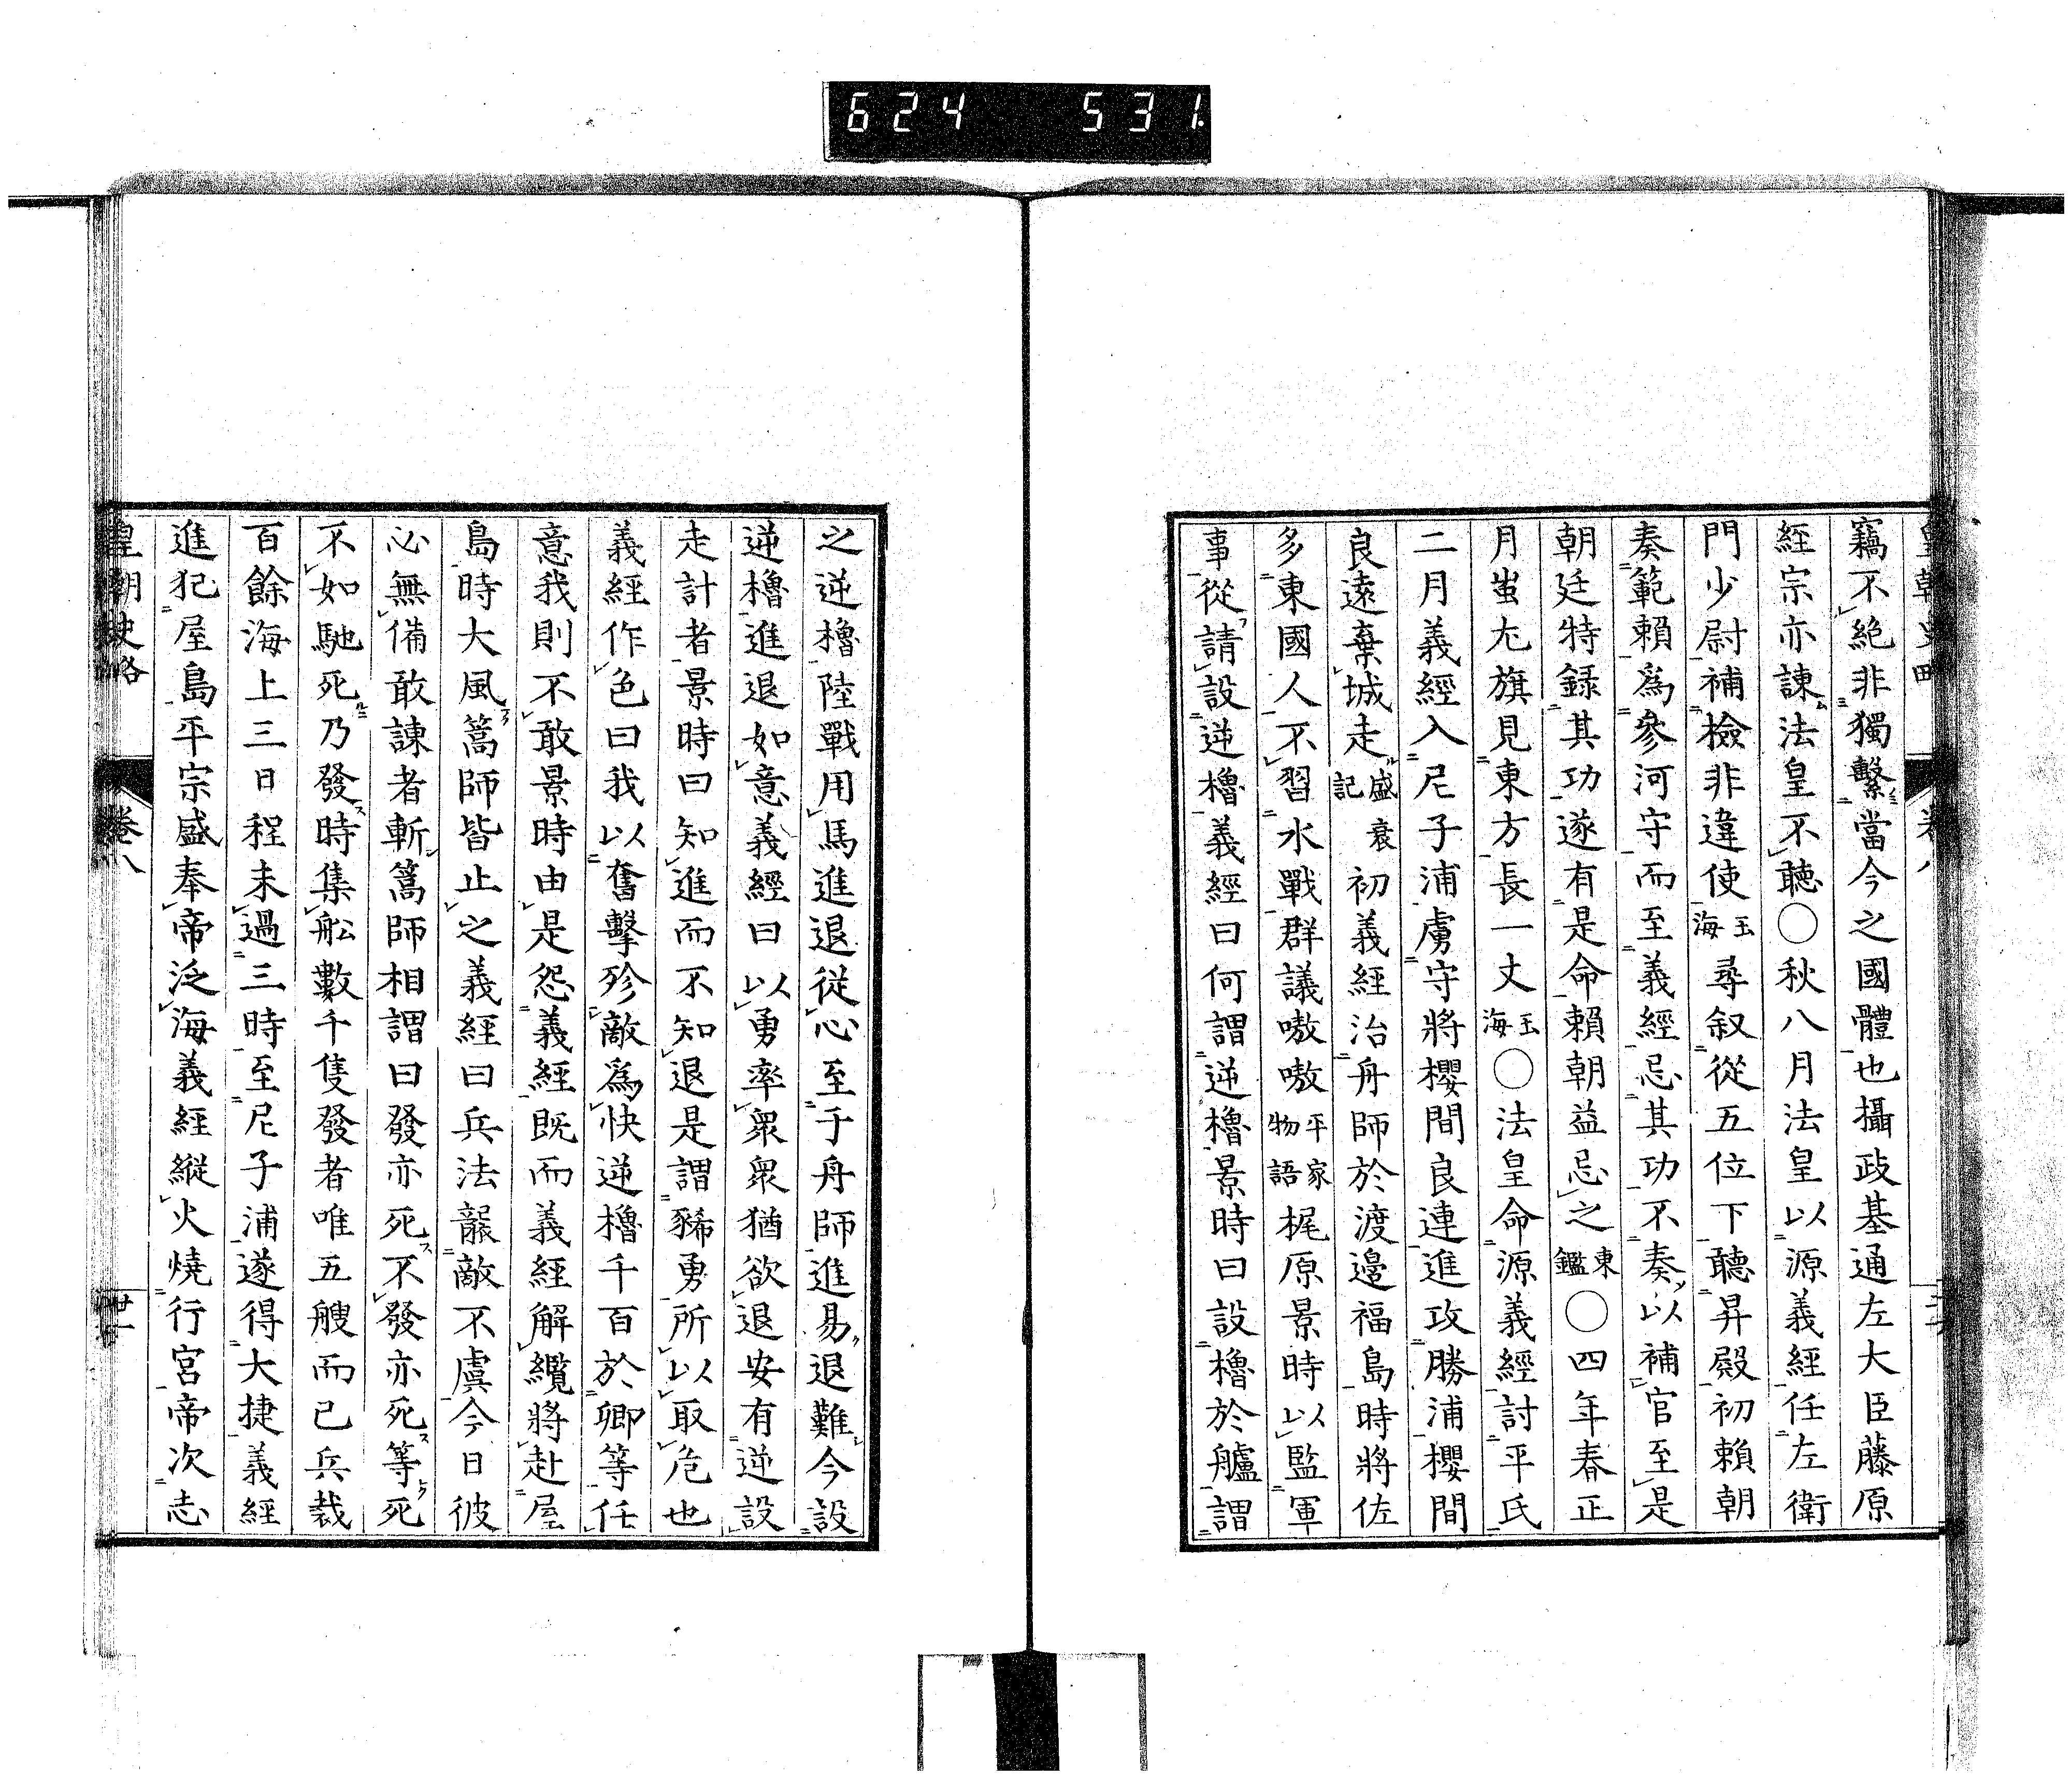 624 531
皇朝史略 卷八
竊不絶非獨繫當今之國體也攝政基通左大臣藤原
經宗亦諫法皇不聽○秋八月法皇以源義經任左衛
門少尉補檢非違使玉海尋叙從五位下聽昇殿初賴朝
奏範賴爲參河守而至義經忌其功不奏以補官至是
朝廷特録其功遂有是命賴朝益忌之東鑑○四年春正
月蚩尤旗見東方長一丈玉海○法皇命源義經討平氏
二月義經入尼子浦虜守將櫻間良連進攻勝浦櫻間
良遠棄城走盛衰記初義經治舟師於渡邉福島時將佐
多東國人不習水戰群議嗷嗷平家物語梶原景時以監軍
事從請設逆櫓義經曰何謂逆櫓景時曰設櫓於艫謂
之逆櫓陸戰用馬進退從心至于舟師進易退難今設
逆櫓進退如意義經曰以勇率衆衆猶欲退安有逆設
走計者景時曰知進而不知退是謂豨勇所以取危也
義經作色曰我以奮擊殄敵爲快逆櫓千百於卿等任
意我則不敢景時由是怨義經既而義經解纜將赴屋
島時大風篙師皆止之義經曰兵法襲敵不虞今日彼
必無備敢諫者斬篙師相謂曰發亦死不發亦死等死
不如馳死乃發時集舩數千隻發者唯五艘而已兵裁
百餘海上三日程未過三時至尼子浦遂得大捷義經
進犯屋島平宗盛奉帝泛海義經縱火燒行宮帝次志
皇朝史略 卷八 廿一